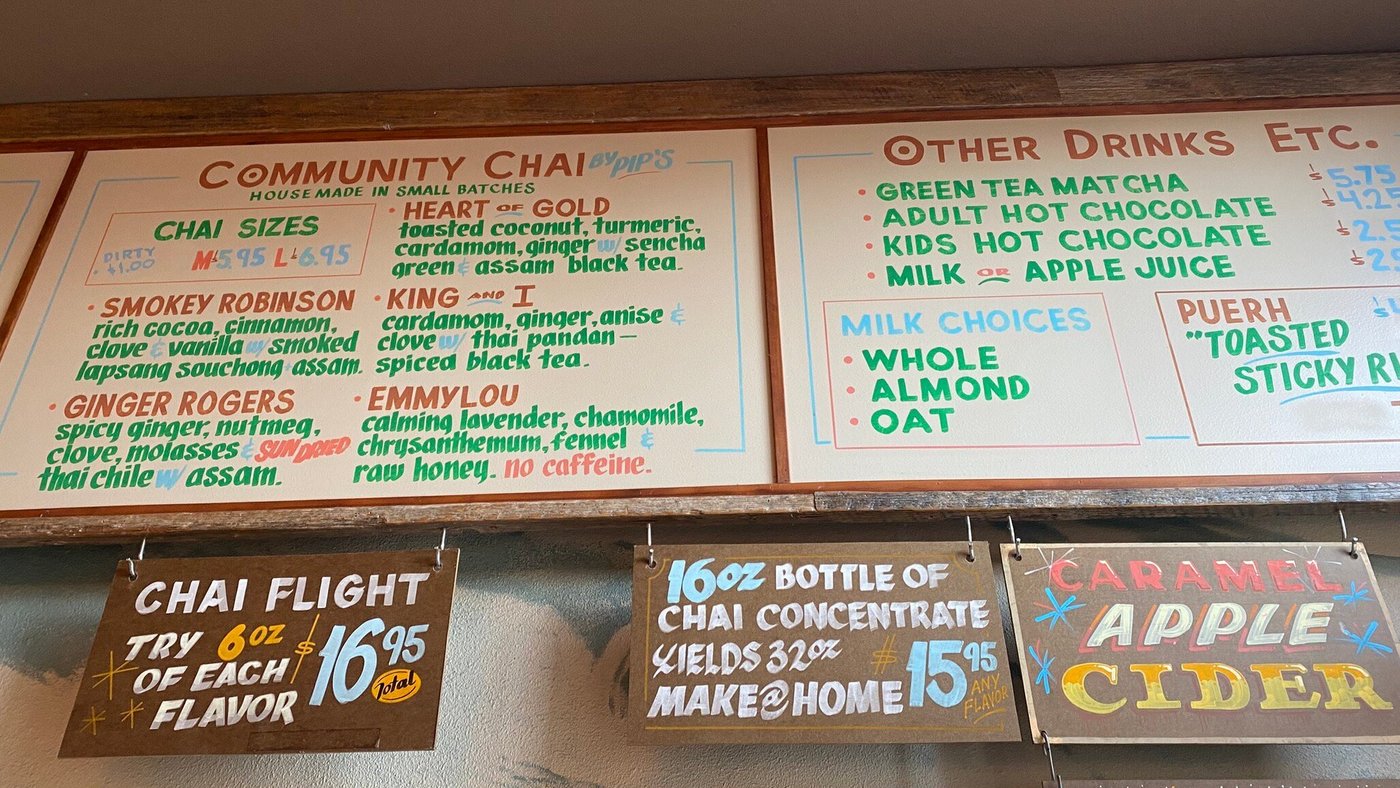 COMMUNITY CHAI BY DIP'S
HOUSE MADE IN SMALL BATCHES
CHAI SIZES
DIRTY
+1.00
M $5.95 L $6.95
• HEART OF GOLD
toasted coconut, turmeric,
cardamom, ginger w/ sencha
green & assam black tea.
• SMOKEY ROBINSON
rich cocoa, cinnamon,
clove & vanilla w/ smoked
lapsang souchong + assam.
• KING AND I
cardamom, ginger, anise &
clove w/ thai pandan—
spiced black tea.
• GINGER ROGERS
spicy ginger, nutmeg,
clove, molasses & SUN DRIED
thai chile w/ assam.
• EMMYLOU
calming lavender, chamomile,
chrysanthemum, fennel &
raw honey. no caffeine.
OTHER DRINKS ETC.
• GREEN TEA MATCHA $5.75
• ADULT HOT CHOCOLATE $4.25
• KIDS HOT CHOCOLATE
• MILK OR APPLE JUICE
MILK CHOICES
• WHOLE
• ALMOND
• OAT
PUERH
"TOASTED
STICKY
CHAI FLIGHT
TRY 6OZ
OF EACH
FLAVOR
$16.95
Total
16OZ BOTTLE OF
CHAI CONCENTRATE
YIELDS 32OZ
MAKE@HOME
$15.95
ANY
FLAVOR
CARAMEL
APPLE
CIDER